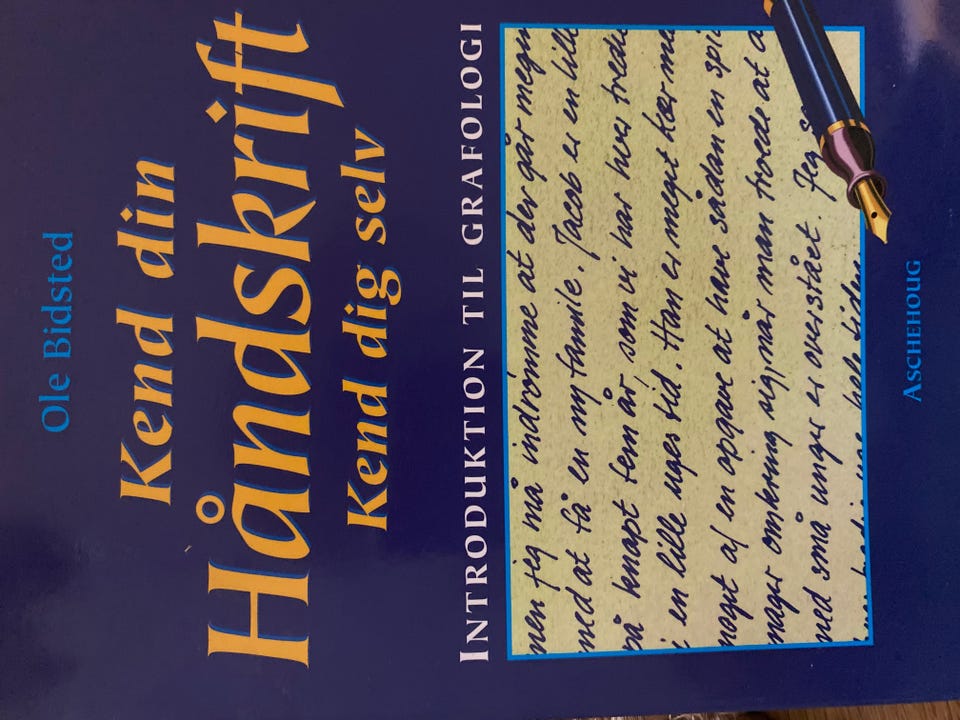 Ole Bidsted
Kend din
Håndskrift
Kend dig selv
INTRODUKTION TIL GRAFOLOGI
men jeg må indrømme at der går megen
med at få en ny familie. Jacob er en lille
på knapt fem år, som vi har hver tredi
i en lille uges tid. Han er meget kær ma
noget af en opgave at have sådan en spi
nager omkring sig, når man troede at a
med små unger er overstået. Jeg
hele tiden
ASCHEHOUG